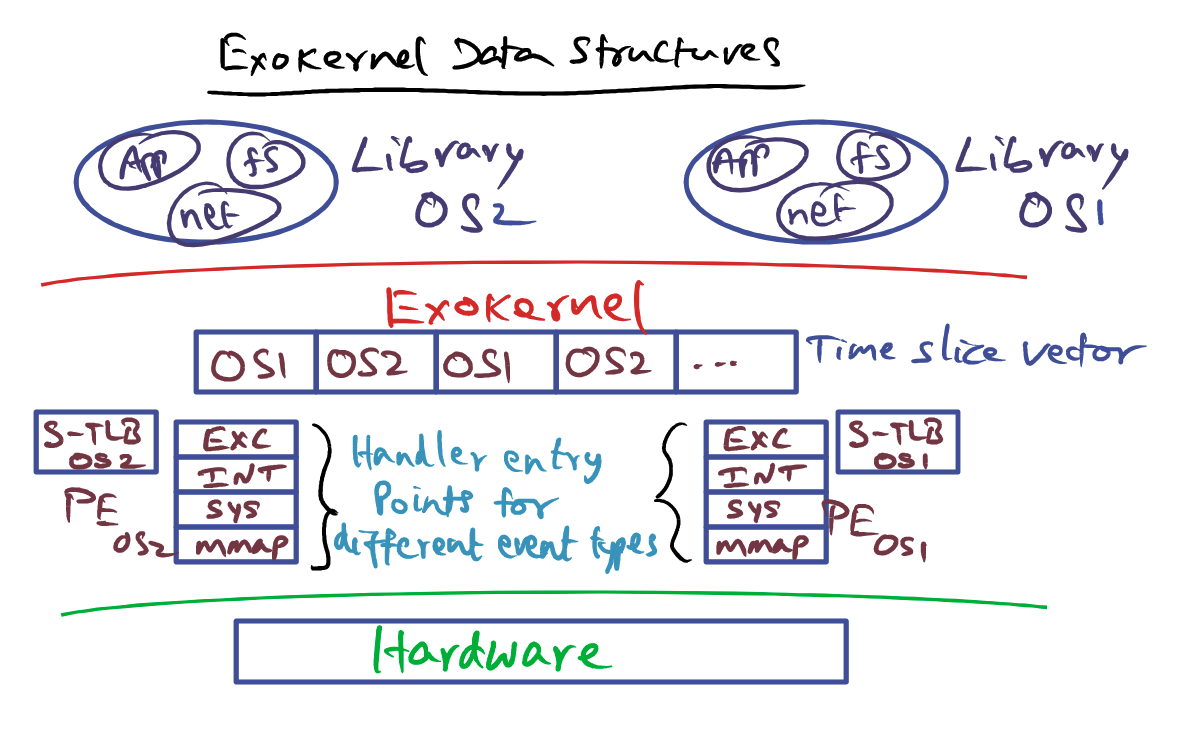 Exokernel Data Structures
App fs
net
Library
OS2
App fs
net
Library
OS1
Exokernel
OS1 OS2 OS1 OS2 ...
Time slice vector
S-TLB
OS2
PE OS2
EXC
INT
SYS
mmap
Handler entry
Points for
different event types
EXC
INT
SYS
mmap
S-TLB
OS1
PE OS1
Hardware